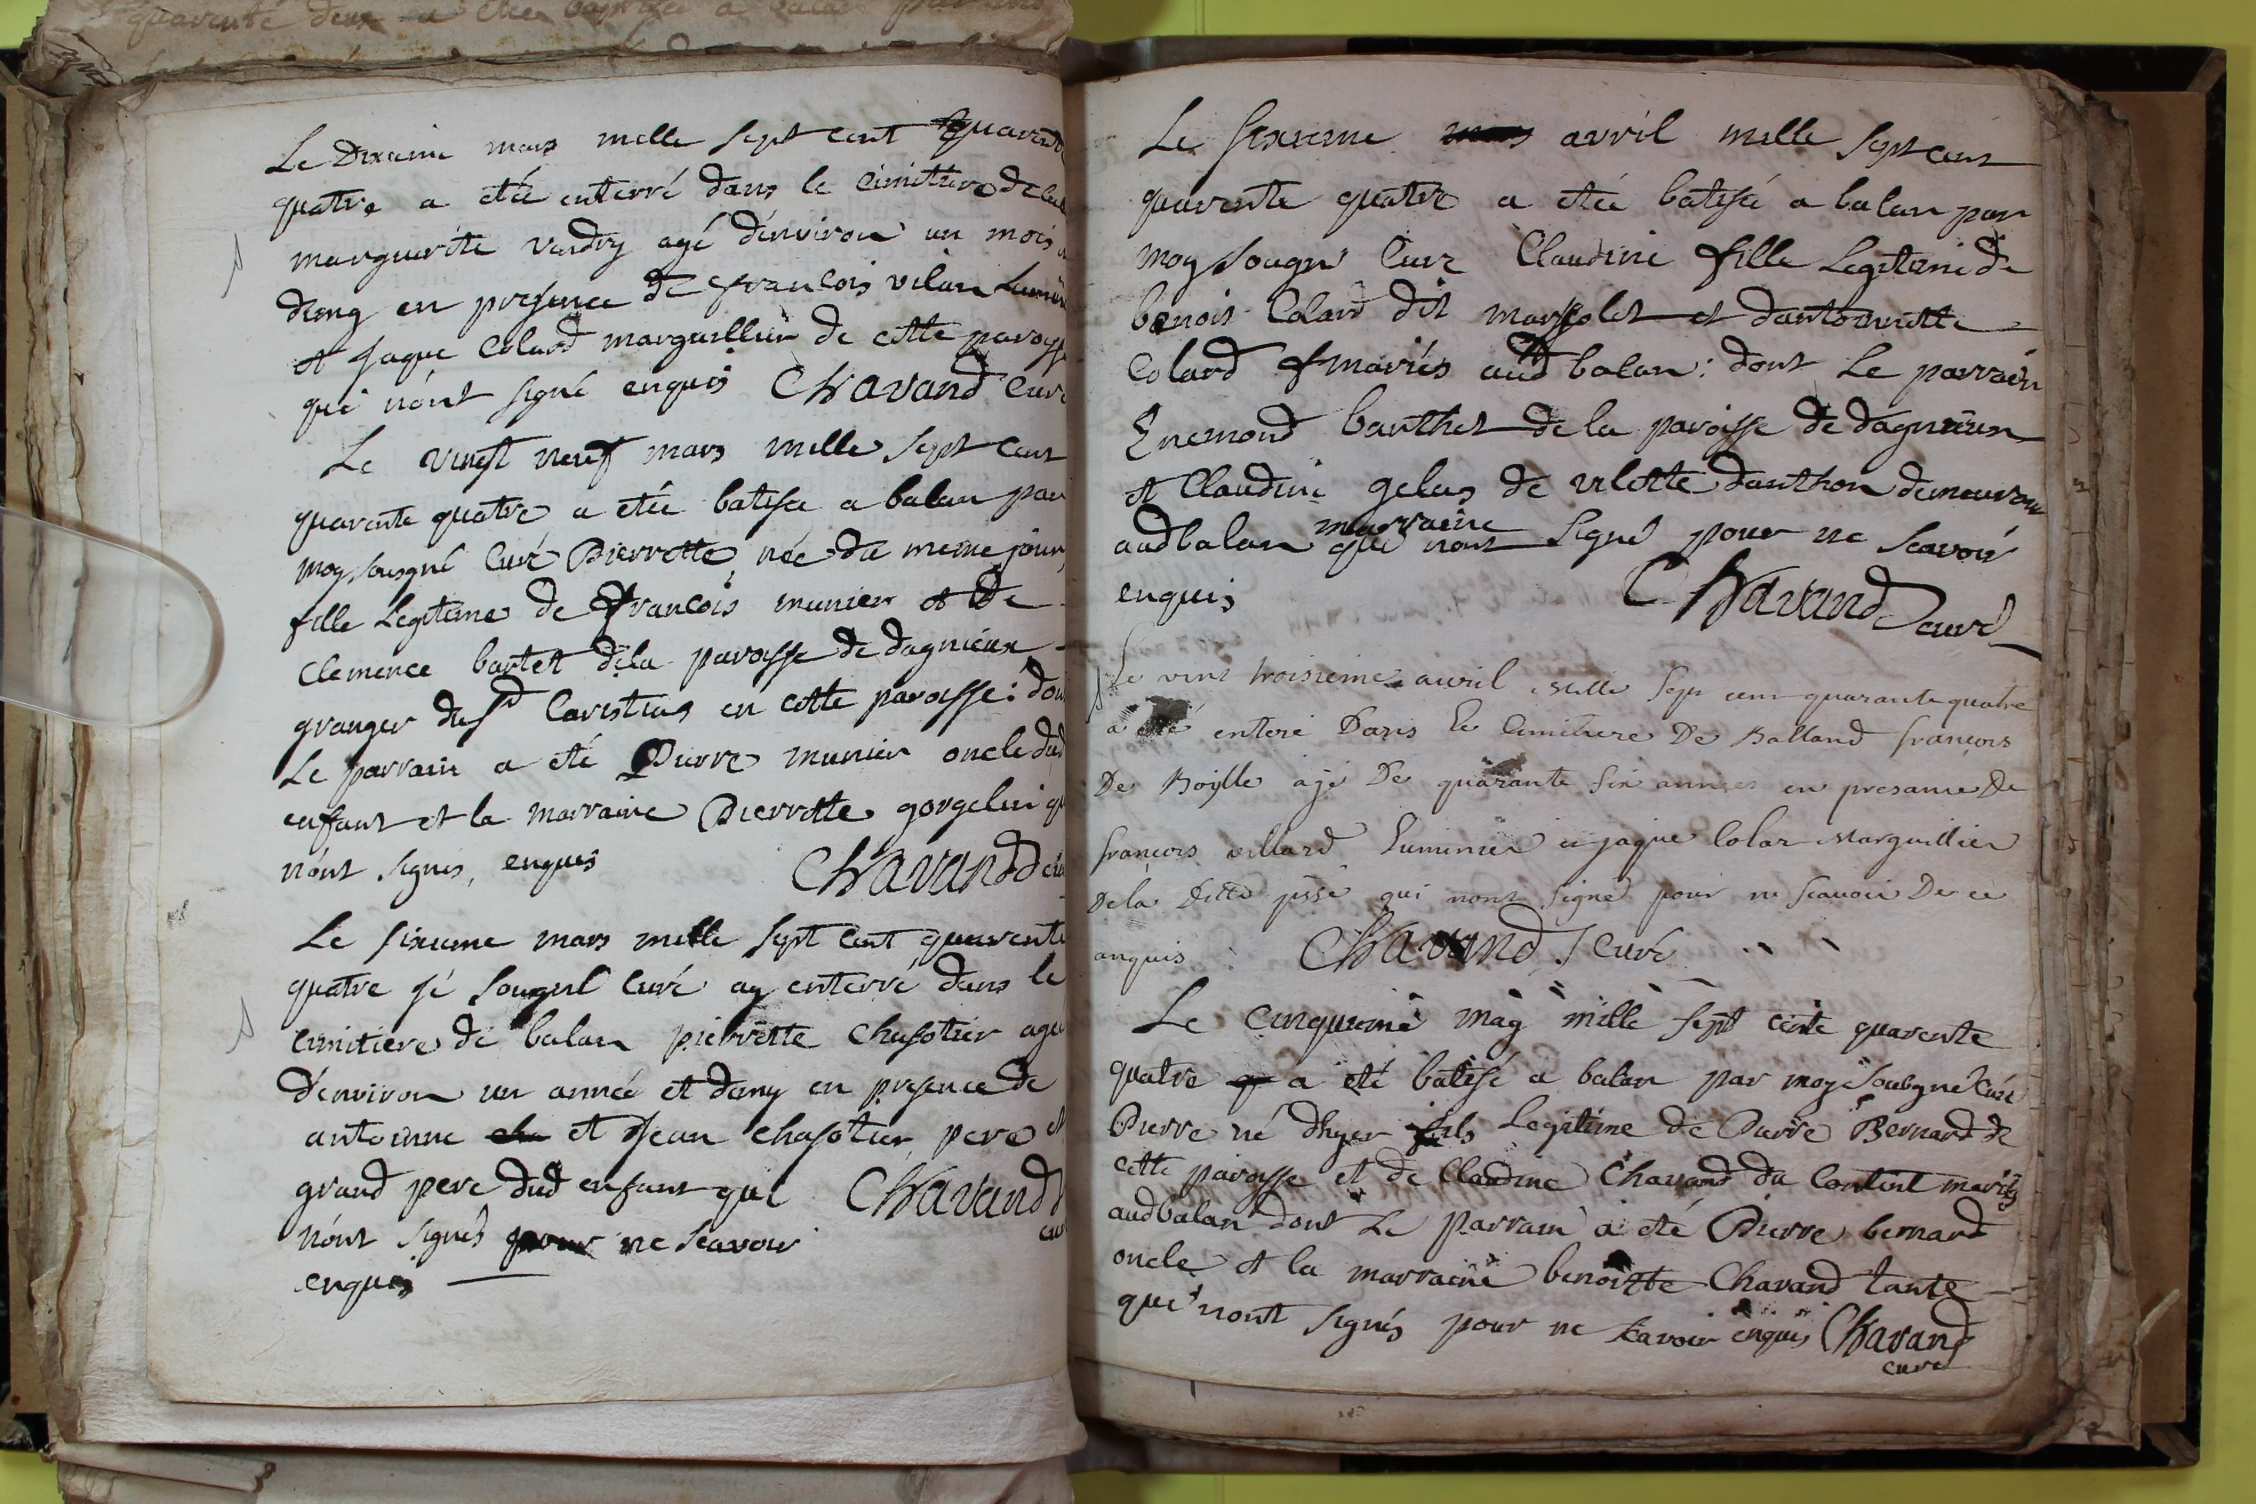 quarente deux a etée baptisée a balan par
Le Dixieme mars mille sept cent quarente
quatre a etée enterré dans le cimitiere de
marguerite vardry agé d'environ un mois
demy en presence de francois vilan Lumin
et jaque Colard marguillier de cette paroisse
qui n'ont signé enquis Chavand Curé
Le vingt neuf mars mille sept cent
quarente quatre a etée batisée a balan par
moy sousigné Curé Pierrette née du meme jour
fille Legitime de francois munier et De
Clemence bartet dela paroisse de dagnieux
granger du sr Caristias en cette paroisse: dont
Le parrain a eté Pierre munier oncle dud
enfant et la marraine Pierrette gorgelin qui
n'ont signés, enquis Chavand curé
Le sixieme mars mille sept cent quarente
quatre je sougné Curé ay enterré dans le
cimitiere de balan pierrette Chasotier agée
D'environ un année et demy en presence de
antoinne et jean Chasotier pere et
grand pere dud enfant qui Chavand
n'ont signés pour ne scavoir curé
enquis
Le sixieme mars avril mille sept cent
quarente quatre a etée batisée a balan par
moy sougné Curé Claudine fille Legitime de
benois Colard dit marsolet et dantoinette
Colard mariés aud balan: dont Le parrain
Enemond barthet de la paroisse de dagnieux
et Claudine gelas de vilette danthon demeurant
marraine
audbalan qui nont signé pour ne scavoir
enquis Chavand curé
Le vint troisieme avvril mille sept cent quarante quatre
a eté enteré Dans le Cimitiere De Balland françois
De Boylle ajé De quarante six années en presance De
françois villard Luminier et jaque Colar Marguillier
Dela Ditte psse qui nont signé pour ne scavoir De ce
anquis: Chavand Curé
Le cinquieme may mille sept cent quarente
quatre a eté batisé a balan par moy sousigné Curé
Pierre né dhyer fils Legitime de Pierre Bernard de
cette paroisse et de Claudine Chavand du Contint mariés
audbalan dont Le parrain a eté Pierre bernard
oncle et la marraine benoitte Chavand tante
qui nont signés pour ne scavoir enquis Chavand
curé